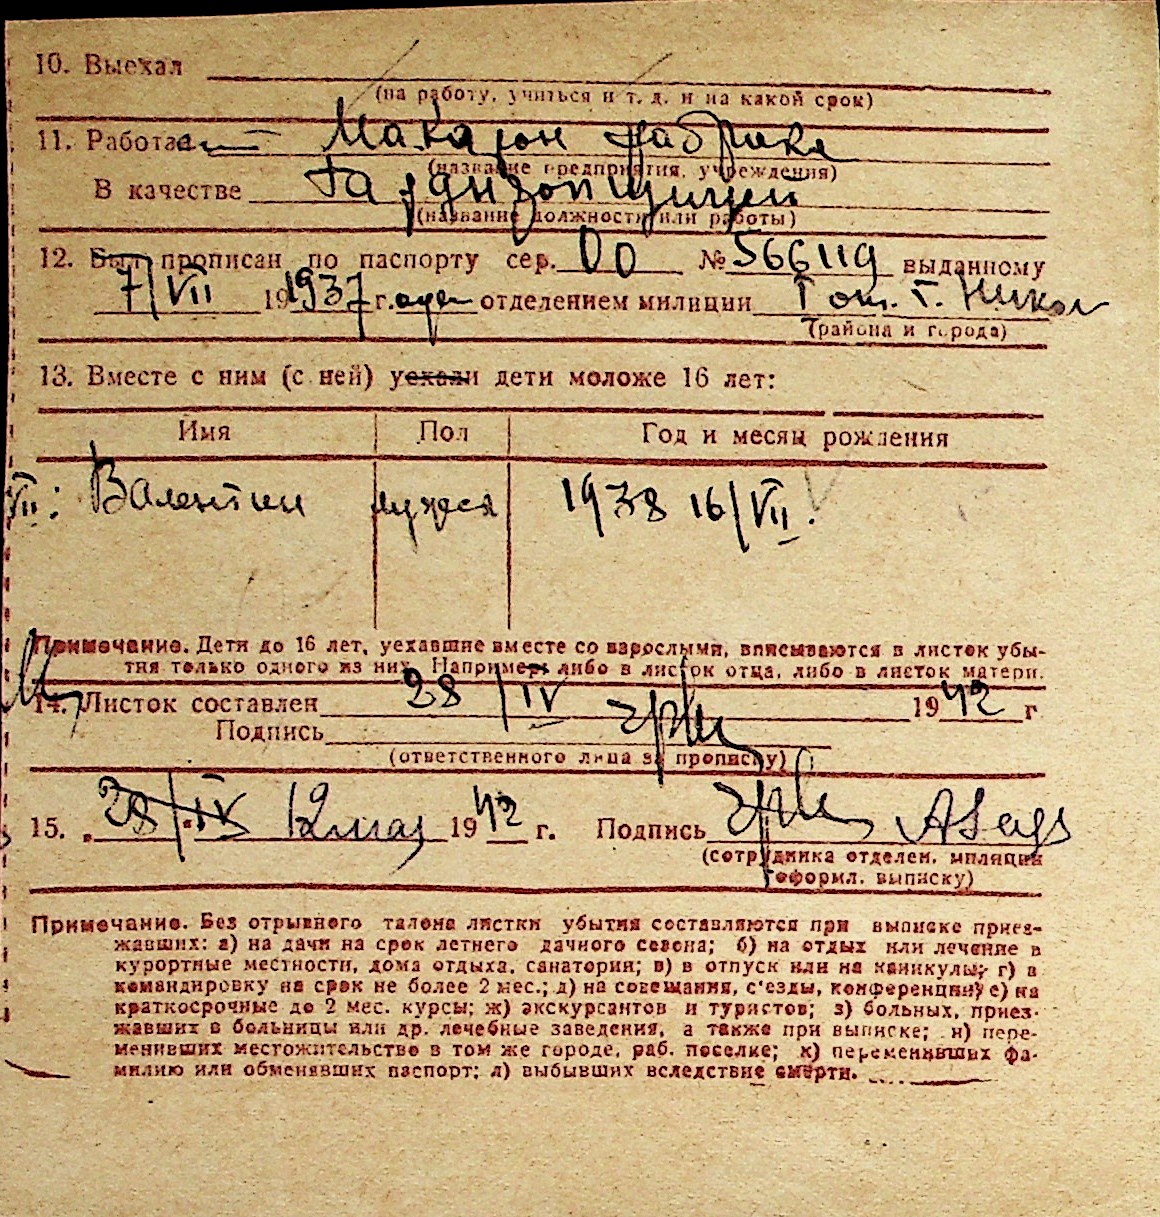 10. Выехал
(на работу, учиться и т. д. и на какой срок)
11. Работает Макарон фабрика
(название предприятия, учреждения)
В качестве
(название должности или работы)
12. Был прописан по паспорту сер. ОО № 566119 выданному
7/VII 1937 г. отделением милиции Г. Никол
(района и города)
13. Вместе с ним (с ней) уехали дети моложе 16 лет:
Имя Пол Год и месяц рождения
VII: Валентин мужск 1938 16/VII.
Примечание. Дети до 16 лет, уехавшие вместе со взрослыми, вписываются в листок убы-
тия только одного из них. Например либо в листок отца, либо в листок матери.
14. Листок составлен 28/IV 1942 г
Подпись
(ответственного лица за прописку)
15. „ 28/IV 12 мая 1942 г. Подпись
(сотрудника отделен. милиции
оформл. выписку)
Примечание. Без отрывного талона листки убытия составляются при выписке приез-
жавших: а) на дачи на срок летнего дачного сезона; б) на отдых или лечение в
курортные местности, дома отдыха, санатории; в) в отпуск или на каникулы; г) в
командировку на срок не более 2 мес.; д) на совещания, с'езды, конференции; е) на
краткосрочные до 2 мес. курсы; ж) экскурсантов и туристов; з) больных, приез-
жавших в больницы или др. лечебные заведения, а также при выписке; и) пере-
менивших местожительство в том же городе, раб. поселке; к) переменивших фа-
милию или обменявших паспорт; л) выбывших вследствие смерти.